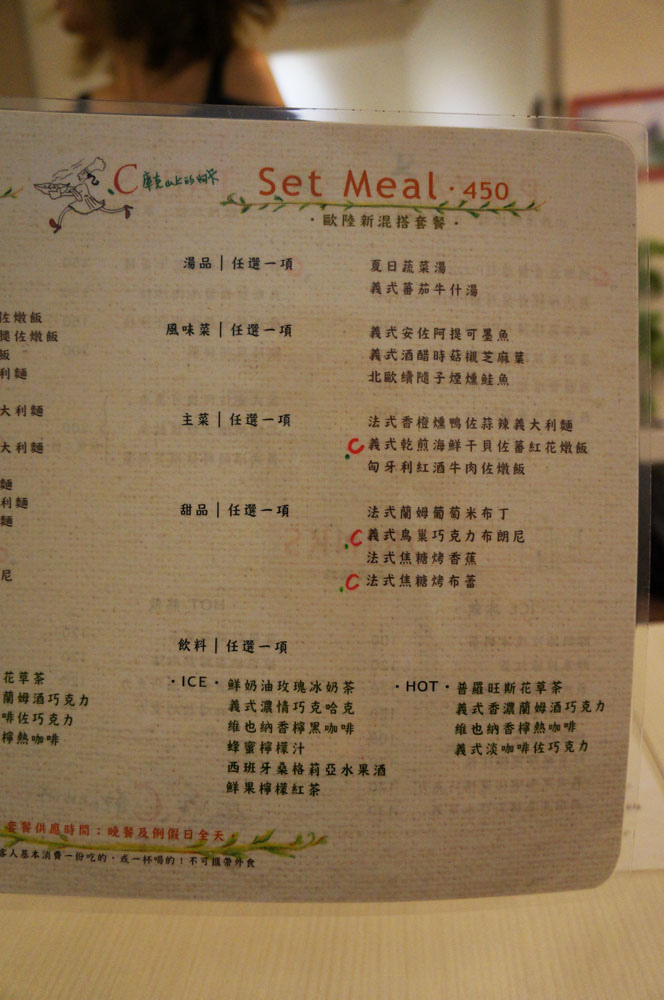 Set Meal · 450
· 歐陸新混搭套餐 ·
湯品｜任選一項
夏日蔬菜湯
義式蕃茄牛什湯
風味菜｜任選一項
義式安佐阿提可墨魚
義式酒醋時菇襯芝麻葉
北歐續隨子煙燻鮭魚
主菜｜任選一項
法式香橙燻鴨佐蒜辣義大利麵
C 義式乾煎海鮮干貝佐蕃紅花燉飯
匈牙利紅酒牛肉佐燉飯
甜品｜任選一項
法式蘭姆葡萄米布丁
C 義式鳥巢巧克力布朗尼
法式焦糖烤香蕉
C 法式焦糖烤布蕾
飲料｜任選一項
· ICE ·
鮮奶油玫瑰冰奶茶
義式濃情巧克哈克
維也納香檸黑咖啡
蜂蜜檸檬汁
西班牙桑格莉亞水果酒
鮮果檸檬紅茶
· HOT ·
普羅旺斯花草茶
義式香濃蘭姆酒巧克力
維也納香檸熱咖啡
義式淡咖啡佐巧克力
佐燉飯
提佐燉飯
飯
利麵
大利麵
大利麵
麵
利麵
麵
尼
花草茶
蘭姆酒巧克力
啡佐巧克力
檸熱咖啡
套餐供應時間：晚餐及例假日全天
客人基本消費一份吃的，或一杯喝的！不可攜帶外食